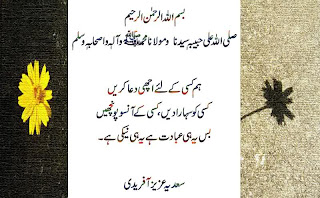 بسم اللہ الرحمٰن الرحیم
صلی اللہ علی حبیبہٖ سیدنا و مولانا محمدﷺ وآلہٖ واصحابہٖ وسلم
ہم کسی کے لئے اچھی دعا کریں
کسی کو سہارا دیں، کسی کے آنسو پونچھیں
بس یہ ہی عبادت ہے یہ ہی نیکی ہے۔
سعدیہ عزیز آفریدی